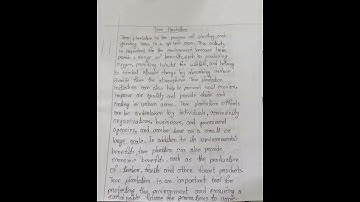 Tree Plantation
Tree plantation is the process of planting and
growing trees in a specific area. This activity
is important for the environment because trees
provide a range of benefits, such as producing
oxygen, providing habitat for wildlife, and helping
to combat climate change by absorbing carbon
dioxide from the atmosphere. Tree plantation
initiatives can also help to prevent soil erosion,
improve air quality and provide shade and
cooling in urban areas. Tree plantation efforts
can be undertaken by individuals, community
organizations, businesses, and government
agencies, and can be done on a small or
large scale. In addition to its environmental
benefits, tree plantation can also provide
economic benefits, such as the production
of timber, fruits and other forest products
Tree plantation is an important tool for
protecting the environment and ensuring a
sustainable future for generations to come.